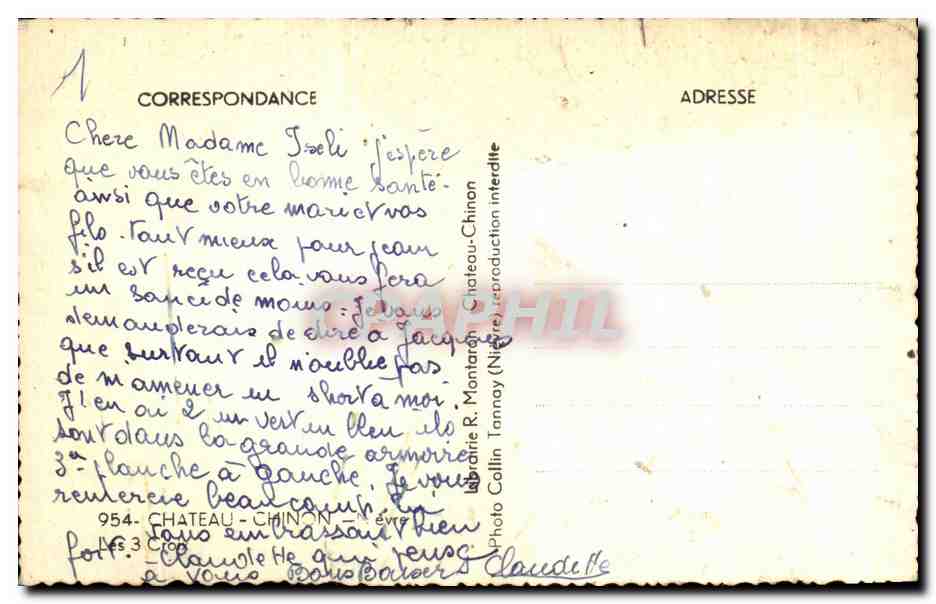 1
CORRESPONDANCE
ADRESSE
Chere Madame Iseli j'espère
que vous êtes en bonne santé.
ainsi que votre mari et vos
fils. tant mieux pour jean
s'il est reçu cela vous fera
un souci de moins. Je vous
demanderais de dire à Jacques
que surtout il n'oublie pas
de m'amener un short a moi.
J'en ai 2 un vert un bleu ils
sont dans la grande armoire
3e planche à gauche. Je vous
remercie beaucoup. En
vous embrassant bien
fort. Claudette qui pense
à vous Bons Baisers Claudette
954- CHATEAU - CHINON - Nièvre
Les 3 Croix
Librairie R. Montaron - Chateau-Chinon
Photo Collin Tannay (Nièvre) reproduction interdite
CPAPHIL